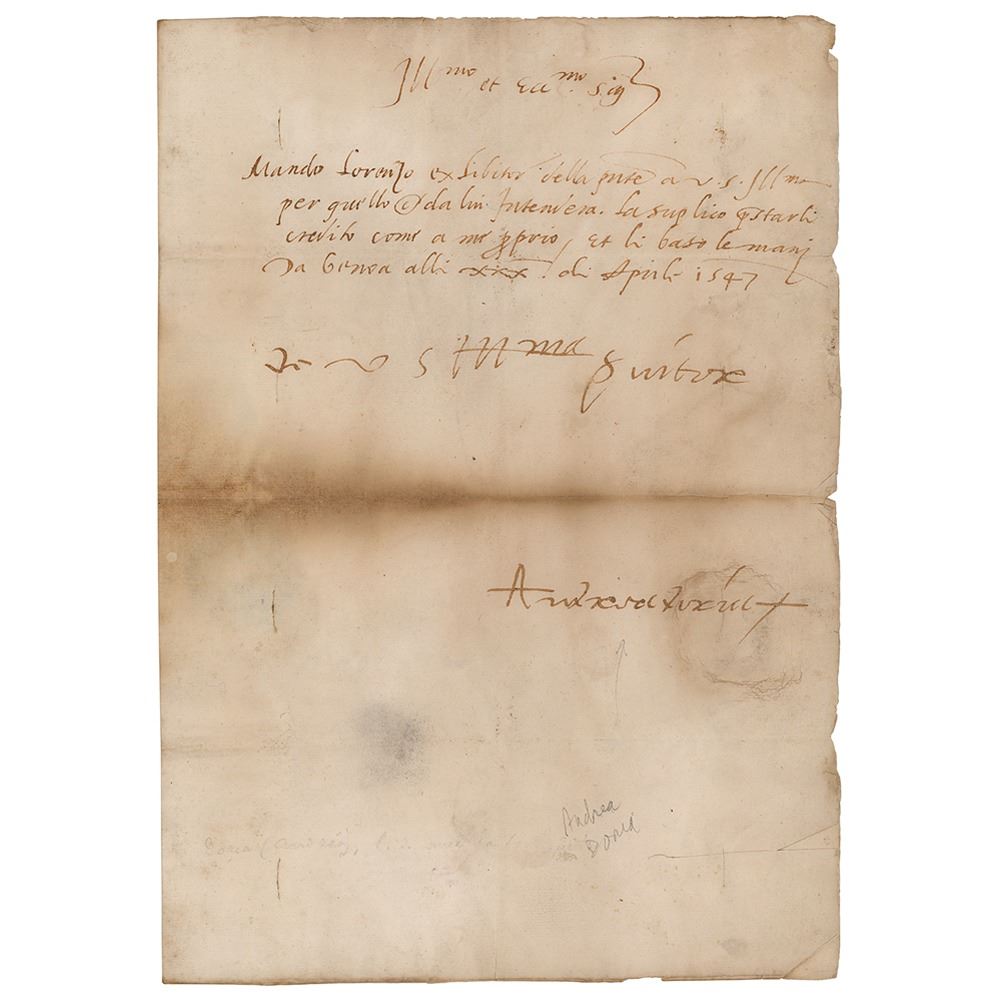 Ill^mo et Ecc^mo Sig
Mando Lorenzo exhibitor della pnte a v. s. Ill^ma
per quello che da lui Intendera. La suplico pstarli
credito come a me pprio, Et li baso le mani
Da Genoa alli xxx di Aprile 1547
De V S Ill^ma
Andrea doria
Andrea
Doria
Doria (Andrea),